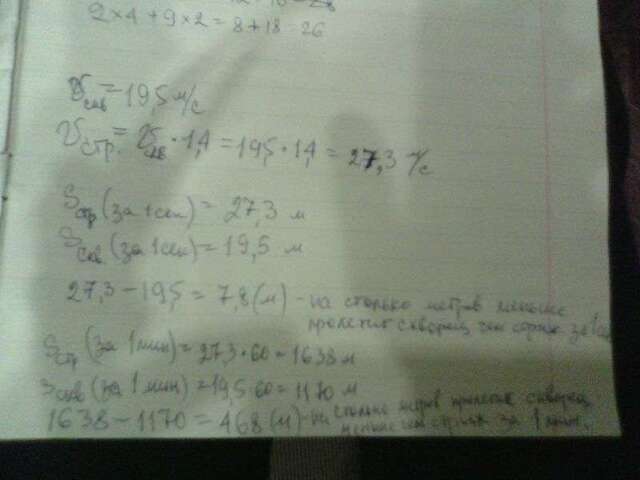 2×4+9×2=8+18 26
Vскв=19,5 м/с
Vстр.=Vскв·1,4=19,5·1,4=27,3 м/с
Sстр(за 1 сек)=27,3 м
Sскв(за 1 сек)=19,5 м
27,3-19,5=7,8(м)-на столько метров меньше
пролетит скворец чем стриж за 1 сек
Sстр(за 1 мин)=27,3·60=1638 м
Sскв(за 1 мин)=19,5·60=1170 м
1638-1170=468(м)-на столько метров пролетит скворец
меньше чем стриж за 1 мин.